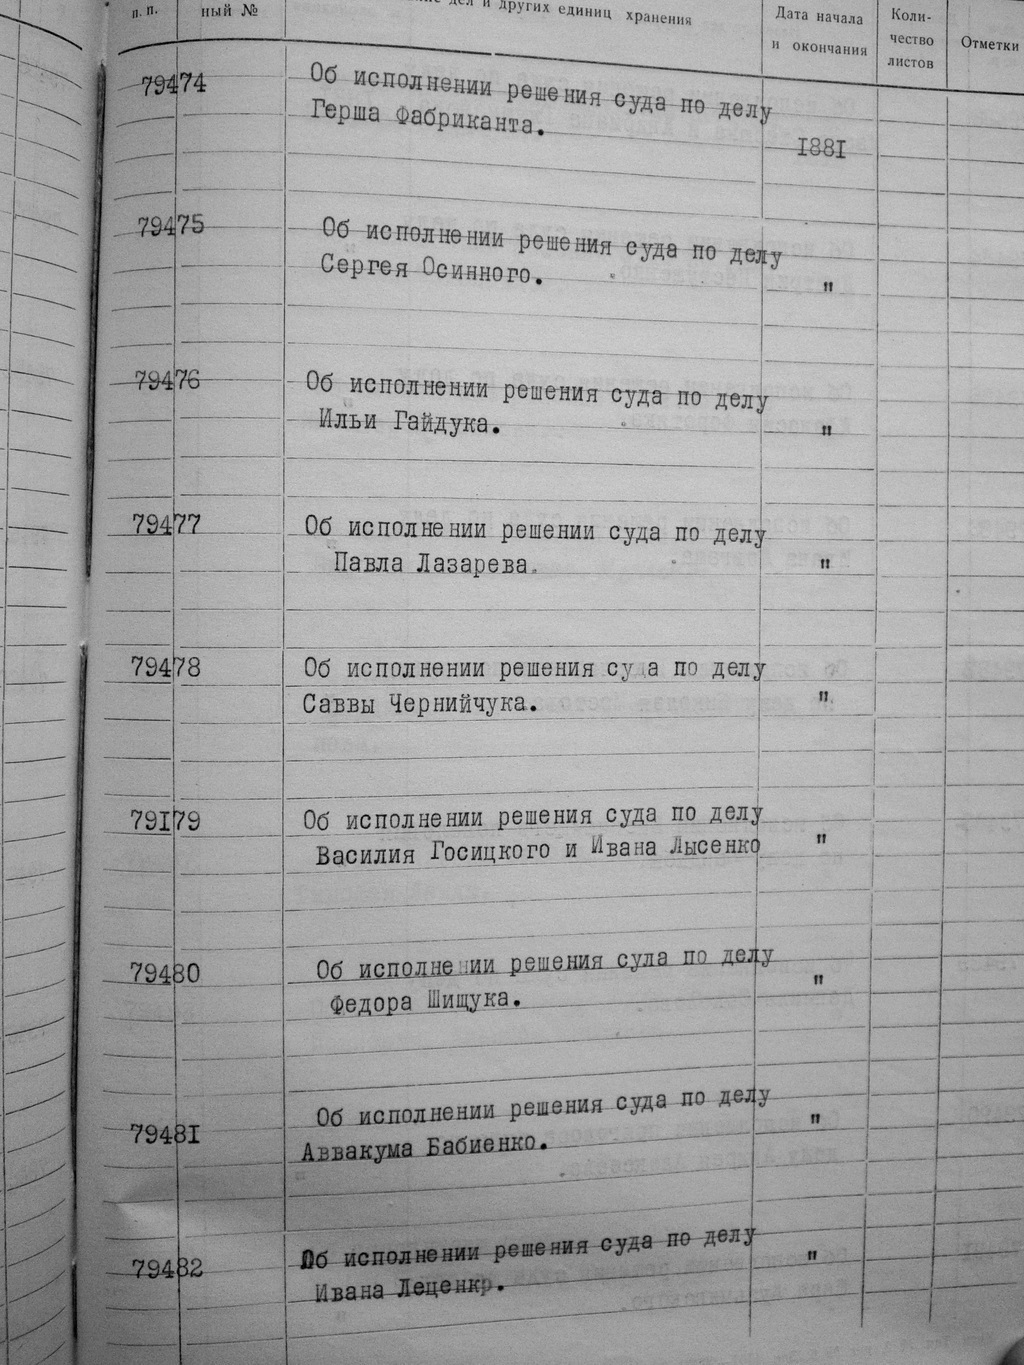 п. п.
ный № дел и других единиц хранения Дата начала и окончания Коли-чество листов Отметки
79474 Об исполнении решения суда по делу
Герша Фабриканта.
1881
79475 Об исполнении решения суда по делу
Сергея Осинного. "
79476 Об исполнении решения суда по делу
Ильи Гайдука. "
79477 Об исполнении решении суда по делу
Павла Лазарева. "
79478 Об исполнении решения суда по делу
Саввы Чернийчука. "
79179 Об исполнении решения суда по делу
Василия Госицкого и Ивана Лысенко "
79480 Об исполнении решения суда по делу
Федора Шищука. "
79481 Об исполнении решения суда по делу "
Аввакума Бабиенко.
79482 Об исполнении решения суда по делу "
Ивана Леценко.